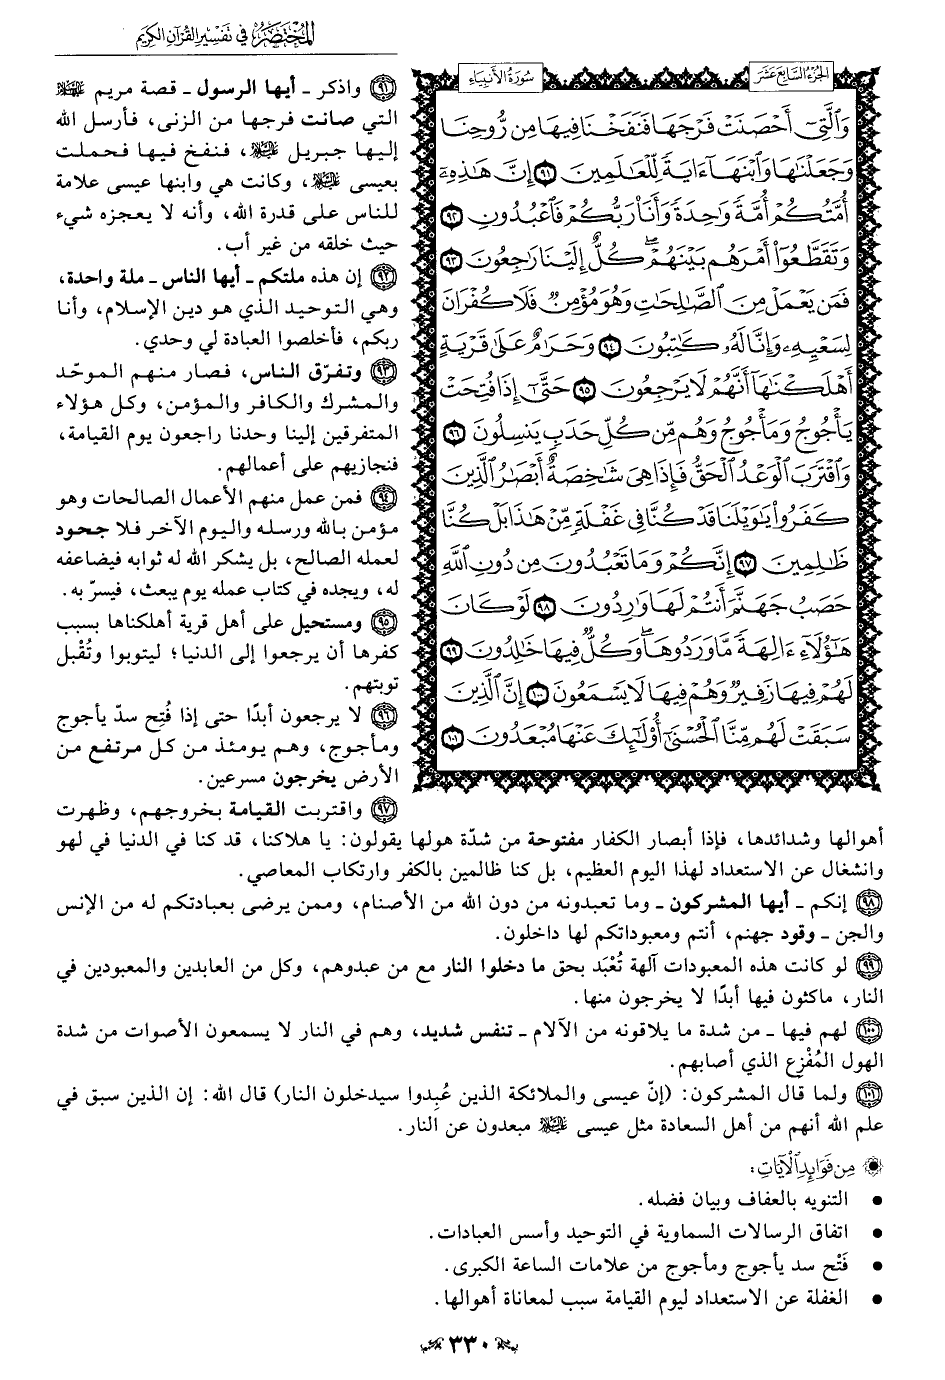 المختصر في تفسير القرآن الكريم
الجزء السابع عشر
سورة الأنبياء
وَٱلَّتِيٓ أَحۡصَنَتۡ فَرۡجَهَا فَنَفَخۡنَا فِيهَا مِن رُّوحِنَا
وَجَعَلۡنَٰهَا وَٱبۡنَهَآ ءَايَةٗ لِّلۡعَٰلَمِينَ ٩١ إِنَّ هَٰذِهِۦٓ
أُمَّتُكُمۡ أُمَّةٗ وَٰحِدَةٗ وَأَنَا۠ رَبُّكُمۡ فَٱعۡبُدُونِ ٩٢
وَتَقَطَّعُوٓاْ أَمۡرَهُم بَيۡنَهُمۡۖ كُلٌّ إِلَيۡنَا رَٰجِعُونَ ٩٣
فَمَن يَعۡمَلۡ مِنَ ٱلصَّٰلِحَٰتِ وَهُوَ مُؤۡمِنٞ فَلَا كُفۡرَانَ
لِسَعۡيِهِۦ وَإِنَّا لَهُۥ كَٰتِبُونَ ٩٤ وَحَرَٰمٌ عَلَىٰ قَرۡيَةٍ
أَهۡلَكۡنَٰهَآ أَنَّهُمۡ لَا يَرۡجِعُونَ ٩٥ حَتَّىٰٓ إِذَا فُتِحَتۡ
يَأۡجُوجُ وَمَأۡجُوجُ وَهُم مِّن كُلِّ حَدَبٖ يَنسِلُونَ ٩٦
وَٱقۡتَرَبَ ٱلۡوَعۡدُ ٱلۡحَقُّ فَإِذَا هِيَ شَٰخِصَةٌ أَبۡصَٰرُ ٱلَّذِينَ
كَفَرُواْ يَٰوَيۡلَنَا قَدۡ كُنَّا فِي غَفۡلَةٖ مِّنۡ هَٰذَا بَلۡ كُنَّا
ظَٰلِمِينَ ٩٧ إِنَّكُمۡ وَمَا تَعۡبُدُونَ مِن دُونِ ٱللَّهِ
حَصَبُ جَهَنَّمَ أَنتُمۡ لَهَا وَٰرِدُونَ ٩٨ لَوۡ كَانَ
هَٰٓؤُلَآءِ ءَالِهَةٗ مَّا وَرَدُوهَاۖ وَكُلّٞ فِيهَا خَٰلِدُونَ ٩٩
لَهُمۡ فِيهَا زَفِيرٞ وَهُمۡ فِيهَا لَا يَسۡمَعُونَ ١٠٠ إِنَّ ٱلَّذِينَ
سَبَقَتۡ لَهُم مِّنَّا ٱلۡحُسۡنَىٰٓ أُوْلَٰٓئِكَ عَنۡهَا مُبۡعَدُونَ ١٠١
٩١ واذكر ـ أيها الرسول ـ قصة مريم عليها السلام
التي صانت فرجها من الزنى، فأرسل الله
إليها جبريل عليه السلام، فنفخ فيها فحملت
بعيسى عليه السلام، وكانت هي وابنها عيسى علامة
للناس على قدرة الله، وأنه لا يعجزه شيء
حيث خلقه من غير أب.
٩٢ إن هذه ملتكم ـ أيها الناس ـ ملة واحدة،
وهي التوحيد الذي هو دين الإسلام، وأنا
ربكم، فأخلصوا العبادة لي وحدي.
٩٣ وتفرّق الناس، فصار منهم الموحّد
والمشرك والكافر والمؤمن، وكل هؤلاء
المتفرقين إلينا وحدنا راجعون يوم القيامة،
فنجازيهم على أعمالهم.
٩٤ فمن عمل منهم الأعمال الصالحات وهو
مؤمن بالله ورسله واليوم الآخر فلا جحود
لعمله الصالح، بل يشكر الله له ثوابه فيضاعفه
له، ويجده في كتاب عمله يوم يبعث، فيسرّ به.
٩٥ ومستحيل على أهل قرية أهلكناها بسبب
كفرها أن يرجعوا إلى الدنيا؛ ليتوبوا وتُقْبل
توبتهم.
٩٦ لا يرجعون أبدًا حتى إذا فُتِح سدّ يأجوج
ومأجوج، وهم يومئذ من كل مرتفع من
الأرض يخرجون مسرعين.
٩٧ واقتربت القيامة بخروجهم، وظهرت
أهوالها وشدائدها، فإذا أبصار الكفار مفتوحة من شدّة هولها يقولون: يا هلاكنا، قد كنا في الدنيا في لهو
وانشغال عن الاستعداد لهذا اليوم العظيم، بل كنا ظالمين بالكفر وارتكاب المعاصي.
٩٨ إنكم ـ أيها المشركون ـ وما تعبدونه من دون الله من الأصنام، وممن يرضى بعبادتكم له من الإنس
والجن ـ وقود جهنم، أنتم ومعبوداتكم لها داخلون.
٩٩ لو كانت هذه المعبودات آلهة تُعْبَد بحق ما دخلوا النار مع من عبدوهم، وكل من العابدين والمعبودين في
النار، ماكثون فيها أبدًا لا يخرجون منها.
١٠٠ لهم فيها ـ من شدة ما يلاقونه من الآلام ـ تنفس شديد، وهم في النار لا يسمعون الأصوات من شدة
الهول المُفْزِع الذي أصابهم.
١٠١ ولما قال المشركون: (إنّ عيسى والملائكة الذين عُبِدوا سيدخلون النار) قال الله: إن الذين سبق في
علم الله أنهم من أهل السعادة مثل عيسى عليه السلام مبعدون عن النار.
من فوائد الآيات:
• التنويه بالعفاف وبيان فضله.
• اتفاق الرسالات السماوية في التوحيد وأسس العبادات.
• فَتْح سد يأجوج ومأجوج من علامات الساعة الكبرى.
• الغفلة عن الاستعداد ليوم القيامة سبب لمعاناة أهوالها.
٣٣٠